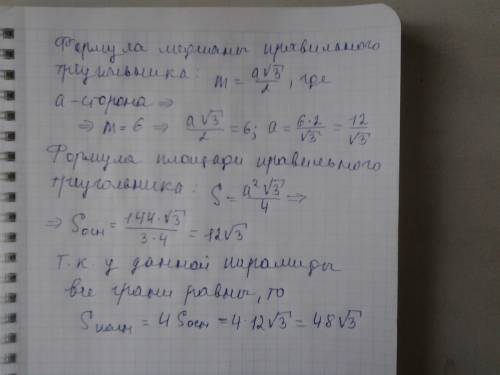 Формула медианы правильного
треугольника: m = a√3/2, где
a – сторона ⇒
⇒ m = 6 ⇒ a√3/2 = 6; a = 6·2/√3 = 12/√3
Формула площади правильного
треугольника: S = a²√3/4 ⇒
⇒ Sосн = 144·√3/3·4 = 12√3
Т.к. у данной пирамиды
все грани равны, то
Sполн = 4 Sосн = 4·12√3 = 48√3